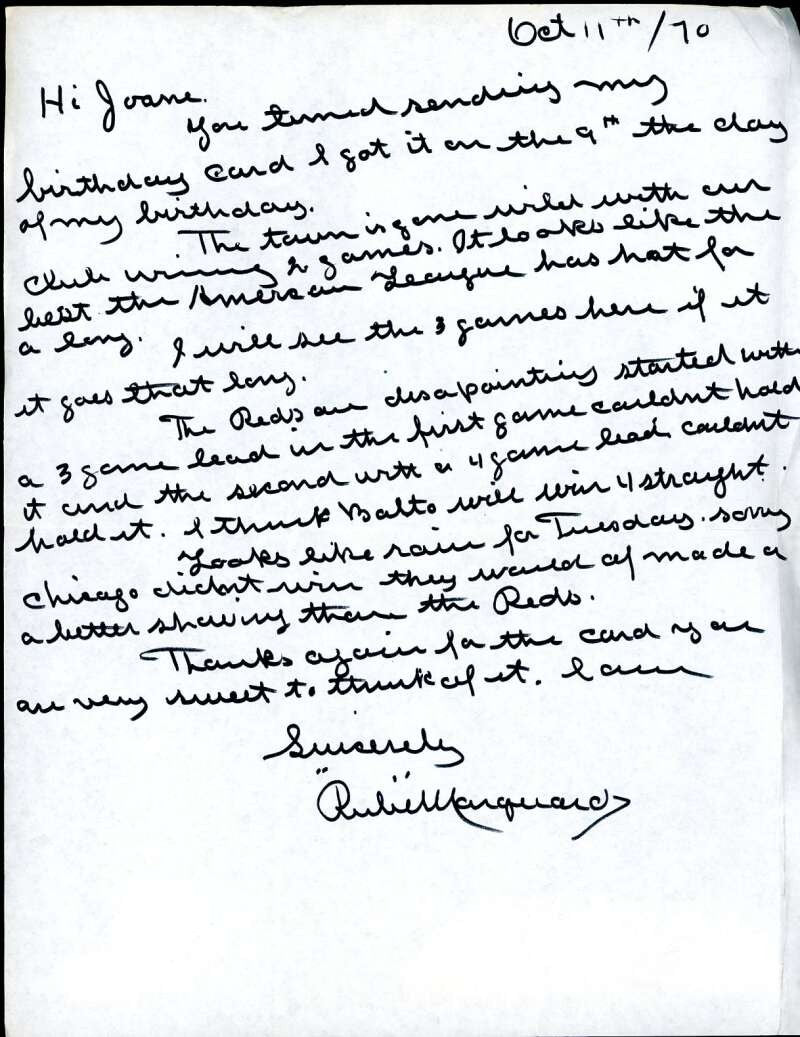 Oct 11th/70
Hi Joane.
You timed sending my
birthday card I got it on the 9th the day
of my birthday.
The town is gone wild with our
club wining 2 games. It looks like the
best the American League has hat for
a long. I will see the 3 games here if it
it goes that long.
The Reds are disapainting started with
a 3 game lead in the first game couldnt hold
it and the second with a 4 game lead couldnt
hold it. I think Balto will win 4 straight.
Looks like rain for Tuesday. sorry
Chicago didnt win they would of made a
a better showing than the Reds.
Thanks again for the card you
are very sweet to think of it. I am
Sincerely
"Rube" Marquard